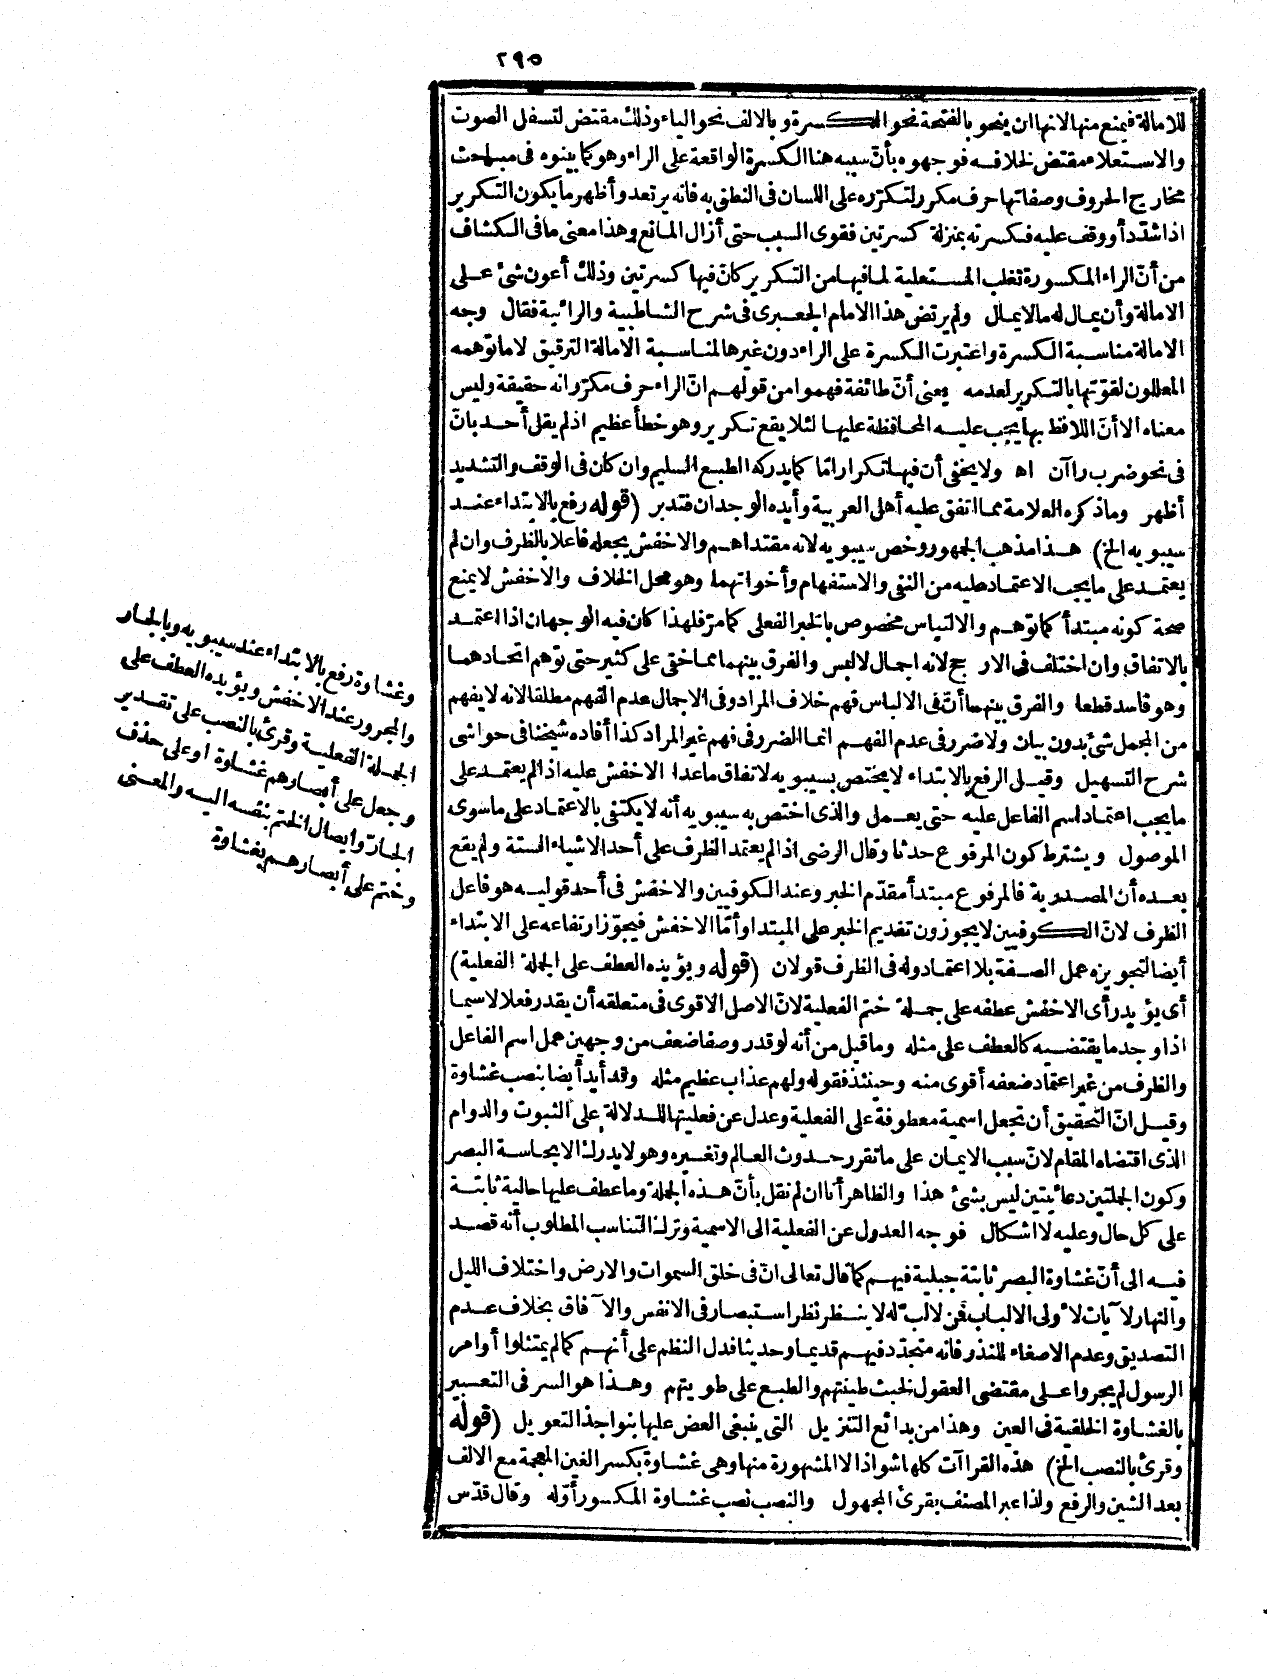 ٢٩٥
للامالة فيمنع منها لانها ان ينحو بالفتحة نحو الكسرة وبالالف نحو الياء وذلك مقتض لتسفل الصوت
والاستعلاء مقتض لخلافه فوجهوه بأنّ سببه هنا الكسرة الواقعة على الراء وهو كما بينوه فى مباحث
مخارج الحروف وصفاتها حرف مكرر لتكرّره على اللسان فى النطق به فانه يرتعد وأظهر ما يكون التكرير
اذا شدّد أو وقف عليه فكسرته بمنزلة كسرتين فقوى السبب حتى أزال المانع وهذا معنى ما فى الكشاف
من أنّ الراء المكسورة تغلب المستعلية لما فيها من التكرير كانّ فيها كسرتين وذلك أعون شئ على
الامالة وأن يمال له ما لا يمال ولم يرتض هذا الامام الجعبرى فى شرح الشاطبية والرائية فقال وجه
الامالة مناسبة الكسرة واعتبرت الكسرة على الراء دون غيرها لمناسبة الامالة الترقيق لا ما توهمه
المعللون لقوّتها بالتكرير لعدمه يعنى أنّ طائفة فهموا من قولهم انّ الراء حرف مكرّر انه حقيقة وليس
معناه الا أنّ اللافظ بها يجب عليه المحافظة عليها لئلا يقع تكرير وهو خطأ عظيم اذ لم يقل أحد بانّ
فى نحو ضرب راآن اه ولا يخفى أن فيها تكرارا مّا كما يدركه الطبع السليم وان كان فى الوقف والتشديد
أظهر وما ذكره العلامة مما اتفق عليه أهل العربية وأيده الوجدان فتدبر (قوله رفع بالابتداء عند
سيبويه الخ) هذا مذهب الجمهور وخص سيبويه لانه مقتداهم والاخفش يجعله فاعلا بالظرف وان لم
يعتمد على ما يجب الاعتماد عليه من النفى والاستفهام وأخواتهما وهو محل الخلاف والاخفش لا يمنع
صحة كونه مبتدأ كما توهم والالتباس مخصوص بالخبر الفعلى كما مرّ فلهذا كان فيه الوجهان اذا اعتمد
بالاتفاق وان اختلف فى الارجح لانه اجمال لا لبس والفرق بينهما مما خفى على كثير حتى توهم اتحادهما
وهو فاسد قطعا والفرق بينهما أنّ فى الالباس فهم خلاف المراد وفى الاجمال عدم الفهم مطلقا لانه لا يفهم
من المجمل شئ بدون بيان ولا ضرر فى عدم الفهم انما الضرر فى فهم غير المراد كذا أفاده شيخنا فى حواشى
شرح التسهيل وقيل الرفع بالابتداء لا يختص بسيبويه لاتفاق ما عدا الاخفش عليه اذا لم يعتمد على
ما يجب اعتماد اسم الفاعل عليه حتى يعمل والذى اختص به سيبويه أنه لا يكتفى بالاعتماد على ما سوى
الموصول ويشترط كون المرفوع حدثا وقال الرضى اذا لم يعتمد الظرف على أحد الاشياء الستة ولم يقع
بعده أن المصدرية فالمرفوع مبتدأ مقدّم الخبر وعند الكوفيين والاخفش فى أحد قوليه هو فاعل
الظرف لانّ الكوفيين لا يجوزون تقديم الخبر على المبتدا وأمّا الاخفش فيجوّز ارتفاعه على الابتداء
أيضا لتجويزه عمل الصفة بلا اعتماد وله فى الظرف قولان (قوله ويؤيده العطف على الجملة الفعلية)
أى يؤيد رأى الاخفش عطفه على جملة ختم الفعلية لانّ الاصل الاقوى فى متعلقه أن يقدر فعلا لا سيما
اذا وجد ما يقتضيه كالعطف على مثله وما قيل من أنه لو قدر وصفا ضعف من وجهين عمل اسم الفاعل
والظرف من غير اعتماد ضعفه أقوى منه وحينئذ فقوله ولهم عذاب عظيم مثله وقد أيد أيضا بنصب غشاوة
وقيل انّ التحقيق أن تجعل اسمية معطوفة على الفعلية وعدل عن فعليتها للدلالة على الثبوت والدوام
الذى اقتضاه المقام لانّ سبب الايمان على ما تقرر حدوث العالم وتغيره وهو لا يدرك الا بحاسة البصر
وكون الجملتين دعائيتين ليس بشئ هذا والظاهر أنا ان لم نقل بأنّ هذه الجملة وما عطف عليها حالية ثابتة
على كل حال وعليه لا اشكال فوجه العدول عن الفعلية الى الاسمية وترك التناسب المطلوب أنه قصد
فيه الى أنّ غشاوة البصر ثابتة جبلية فيهم كما قال تعالى انّ فى خلق السموات والارض واختلاف الليل
والنهار لآيات لاولى الالباب فمن لا لبّ له لا ينظر نظر استبصار فى الانفس والآفاق بخلاف عدم
التصديق وعدم الاصغاء للنذر فانه متجدّد فيهم قديما وحديثا فدل النظم على أنهم كما لم يمتثلوا أوامر
الرسول لم يجروا على مقتضى العقول لخبث طينتهم والطبع على طويتهم وهذا هو السر فى التعبير
بالغشاوة الخلقية فى العين وهذا من بدائع التنزيل التى ينبغى العض عليها بنواجذ التعويل (قوله
وقرئ بالنصب الخ) هذه القراآت كلها شواذ الا المشهورة منها وهى غشاوة بكسر الغين المعجمة مع الالف
بعد الشين والرفع ولذا عبر المصنف بقرئ المجهول والنصب نصب غشاوة المكسور أوّله وقال قدّس
وغشاوة رفع بالابتداء عند سيبويه وبالجار
والمجرور عند الاخفش ويؤيده العطف على
الجملة الفعلية وقرئ بالنصب على تقدير
وجعل على أبصارهم غشاوة أو على حذف
الجارّ وايصال الختم بنفسه اليه والمعنى
وختم على أبصارهم بغشاوة